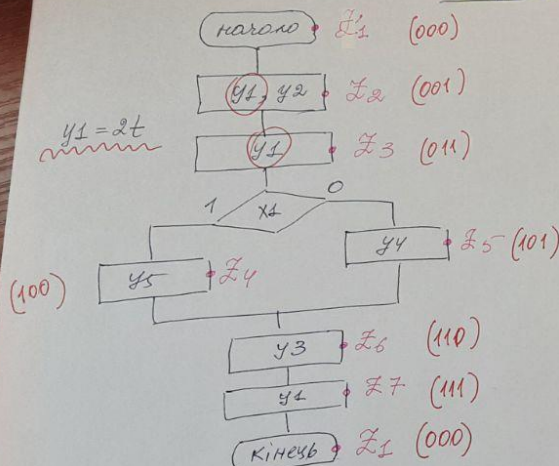 начало Z1 (000)
y1, y2 Z2 (001)
y1 = 2t
y1 Z3 (011)
1 x1 0
y4 Z5 (101)
(100) y5 Z4
y3 Z6 (110)
y1 Z7 (111)
кінець Z1 (000)